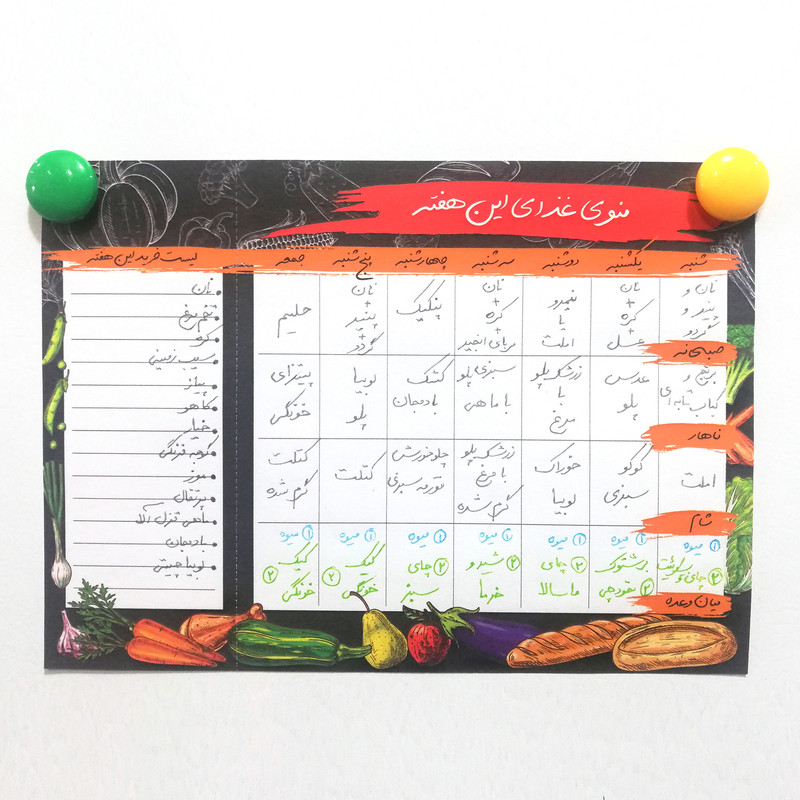 منوی غذای این هفته
شنبه
یکشنبه
دوشنبه
سه شنبه
چهارشنبه
پنج شنبه
جمعه
صبحانه
نان و
پنیر و
گردو
نان
+
کره
+
عسل
نیمرو
یا
املت
نان
+
کره
+
مربای انجیر
پنکیک
نان
+
پنیر
+
گردو
حلیم
ناهار
برنج و
کباب تابه ای
عدس
پلو
زرشک پلو
با
مرغ
سبزی پلو
با ماهی
کشک
بادمجان
لوبیا
پلو
پیتزای
خونگی
شام
املت
کوکو
سبزی
خوراک
لوبیا
زرشک پلو
با مرغ
گرم شده
چلوخورش
قورمه سبزی
کتلت
کتلت
گرم شده
میان وعده
① میوه
② چای و بیسکوئیت
① میوه
برشتوک
② نخودچی
① میوه
② چای
ماسالا
① میوه
② شیر و
خرما
① میوه
② چای
سبز
① میوه
کیک
② خونگی
① میوه
کیک
② خونگی
لیست خرید این هفته
نان
تخم مرغ
کره
سیب زمینی
پیاز
کاهو
خیار
گوجه فرنگی
موز
پرتقال
ماهی قزل آلا
بادمجان
لوبیا چیتی